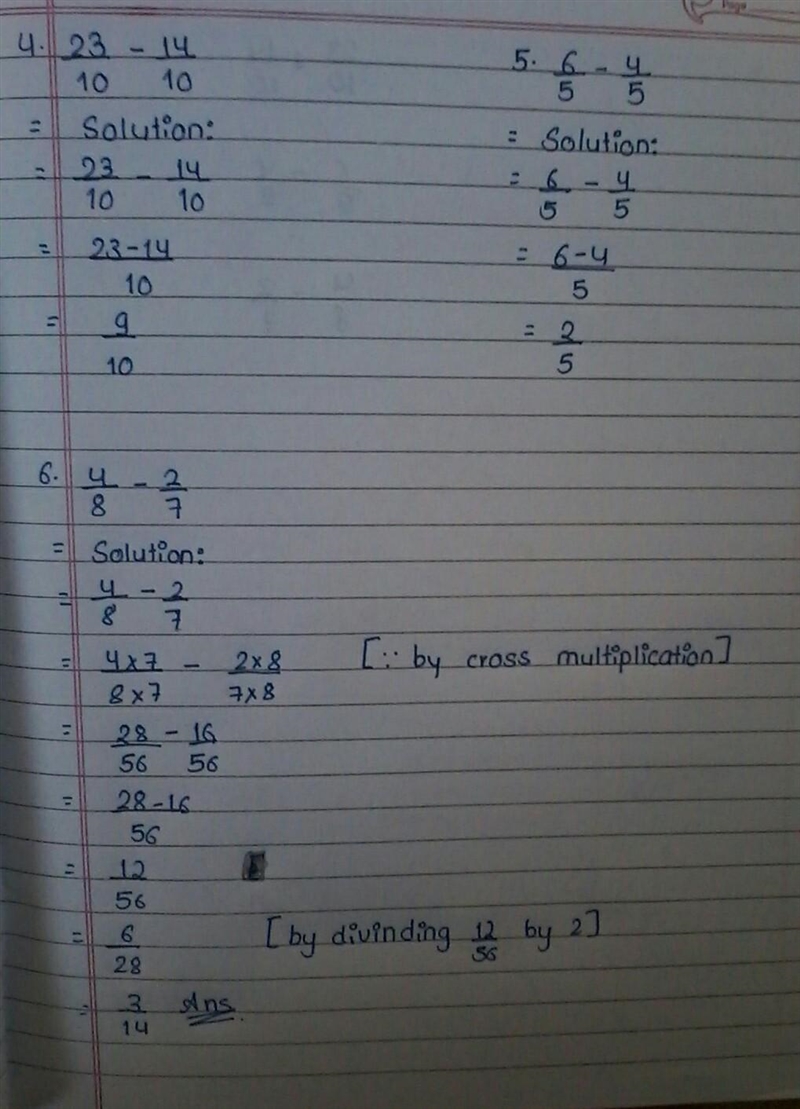 4. 23/10 - 14/10
= Solution:
= 23/10 - 14/10
= 23-14/10
= 9/10
5. 6/5 - 4/5
= Solution:
= 6/5 - 4/5
= 6-4/5
= 2/5
6. 4/8 - 2/7
= Solution:
= 4/8 - 2/7
= 4x7/8x7 - 2x8/7x8 [∵ by cross multiplication]
= 28/56 - 16/56
= 28-16/56
= 12/56
= 6/28 [by divinding 12/56 by 2]
= 3/14 Ans